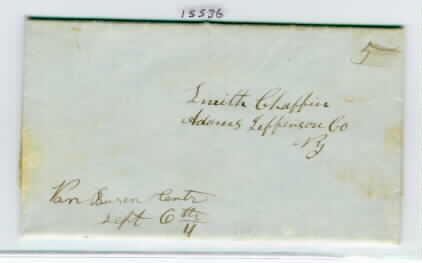 15536
5
Smith Chappin
Adams Jefferson Co
NY
Van Buren Centr
Sept 6th